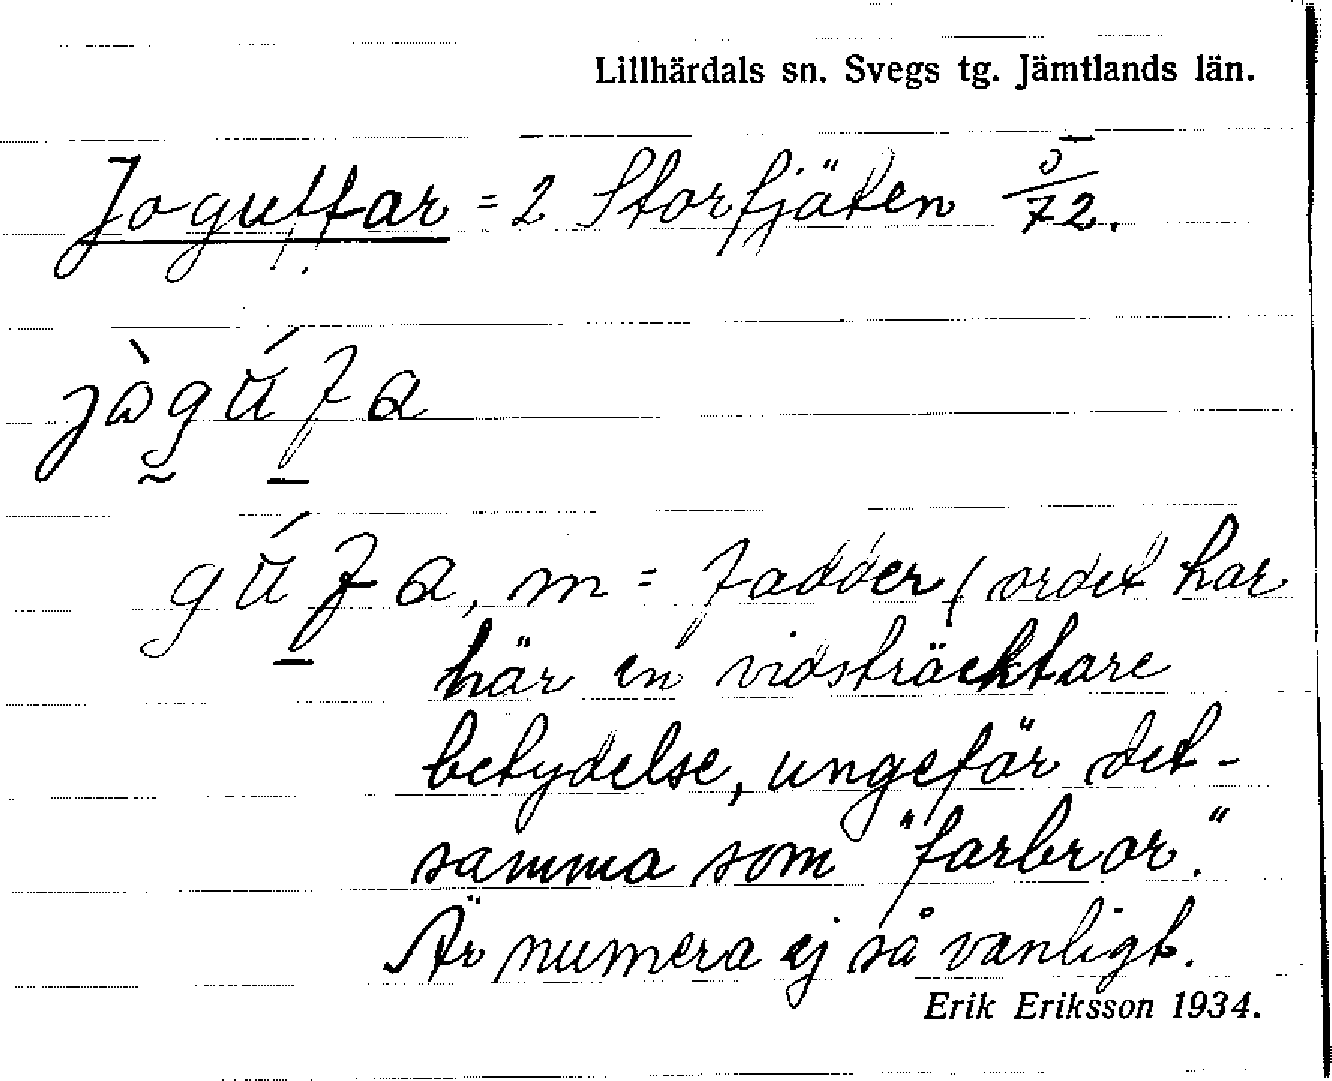 Lillhärdals sn. Svegs tg. Jämtlands län.
Joguffar = 2 Storfjäten 5/72.
jògúfa
gúfa, m = fadder (ordet har
här en vidsträcktare
betydelse, ungefär det-
samma som "farbror."
Är numera ej så vanligt.
Erik Eriksson 1934.